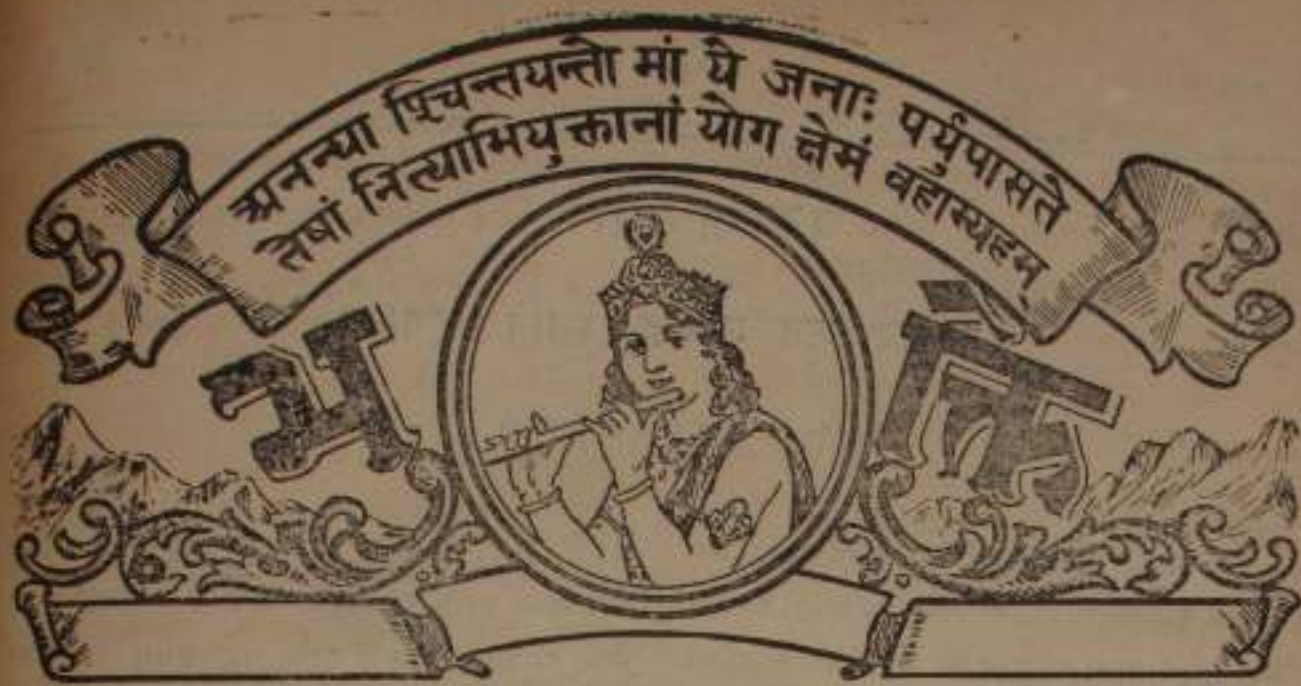 अनन्या श्चिन्तयन्तो मां ये जनाः पर्युपासते
तेषां नित्याभियुक्तानां योग क्षेमं वहाम्यहम्
भक्त